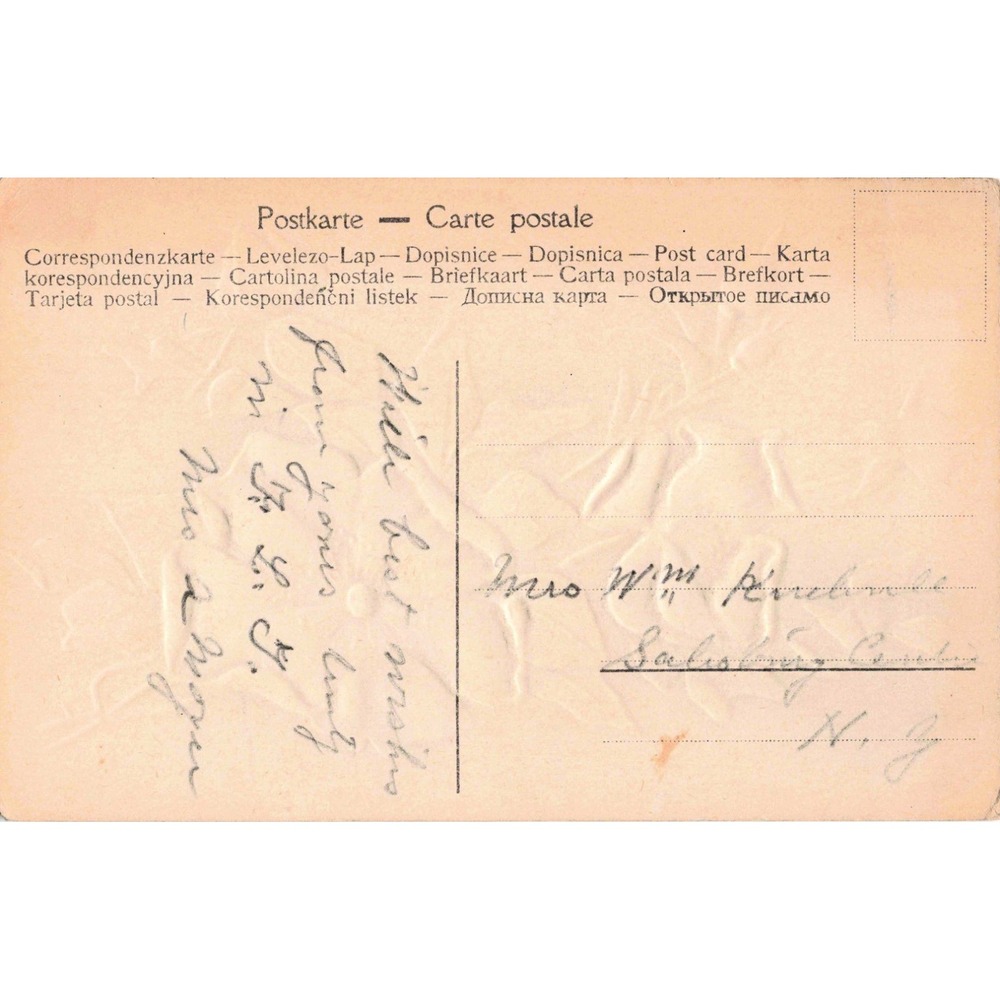 Postkarte — Carte postale
Correspondenzkarte — Levelezo-Lap — Dopisnice — Dopisnica — Post card — Karta
korespondencyjna — Cartolina postale — Briefkaart — Carta postala — Brefkort —
Tarjeta postal — Korespondenčni listek — Дописна карта — Открытое писамо
With best wishes
from yours truly
in F. L. T.
Mrs a
Mrs Wm
Salisbury Center
N. Y